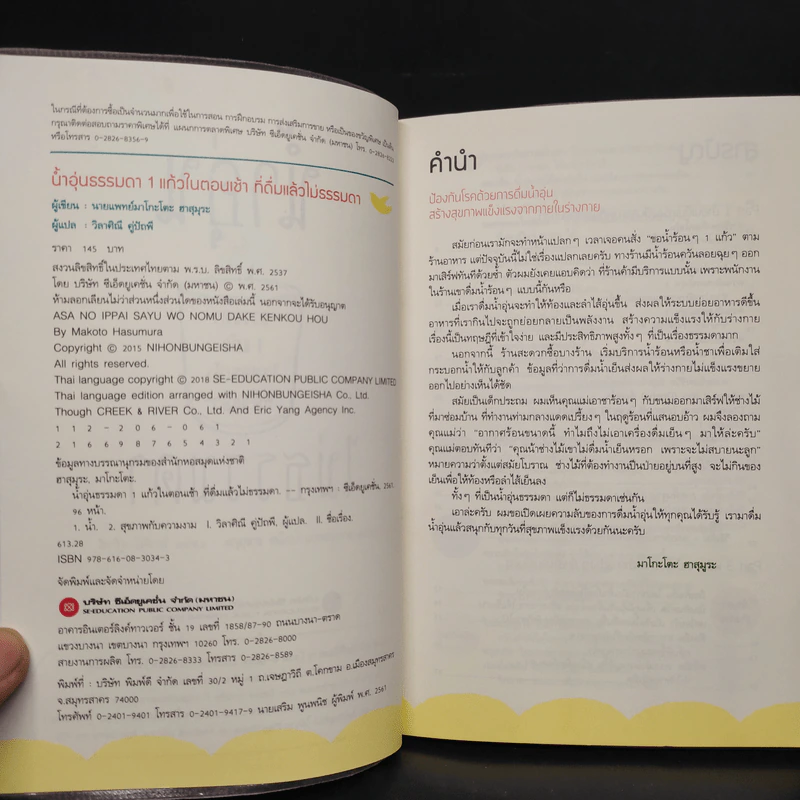 ในกรณีที่ต้องการซื้อเป็นจำนวนมากเพื่อใช้ในการสอน การฝึกอบรม การส่งเสริมการขาย หรือเป็นของขวัญพิเศษ เป็นต้น
กรุณาติดต่อสอบถามราคาพิเศษได้ที่ แผนกการตลาดพิเศษ บริษัท ซีเอ็ดยูเคชั่น จำกัด (มหาชน) โทร.
หรือโทรสาร 0-2826-8356-9
น้ำอุ่นธรรมดา 1 แก้วในตอนเช้า ที่ดื่มแล้วไม่ธรรมดา
ผู้เขียน : นายแพทย์มาโกะโตะ ฮาสุมุระ
ผู้แปล : วิลาศิณี คู่ปัถพี
ราคา 145 บาท
สงวนลิขสิทธิ์ในประเทศไทยตาม พ.ร.บ. ลิขสิทธิ์ พ.ศ. 2537
โดย บริษัท ซีเอ็ดยูเคชั่น จำกัด (มหาชน) © พ.ศ. 2561
ห้ามลอกเลียนไม่ว่าส่วนหนึ่งส่วนใดของหนังสือเล่มนี้ นอกจากจะได้รับอนุญาต
ASA NO IPPAI SAYU WO NOMU DAKE KENKOU HOU
By Makoto Hasumura
Copyright © 2015 NIHONBUNGEISHA
All rights reserved.
Thai language copyright © 2018 SE-EDUCATION PUBLIC COMPANY LIMITED
Thai language edition arranged with NIHONBUNGEISHA Co., Ltd.
Though CREEK & RIVER Co., Ltd. And Eric Yang Agency Inc.
1 1 2 - 2 0 6 - 0 6 1
2 1 6 6 9 8 7 6 5 4 3 2 1
ข้อมูลทางบรรณานุกรมของสำนักหอสมุดแห่งชาติ
ฮาสุมุระ, มาโกะโตะ.
น้ำอุ่นธรรมดา 1 แก้วในตอนเช้า ที่ดื่มแล้วไม่ธรรมดา. -- กรุงเทพฯ : ซีเอ็ดยูเคชั่น, 2561.
96 หน้า.
1. น้ำ. 2. สุขภาพกับความงาม I. วิลาศิณี คู่ปัถพี, ผู้แปล. II. ชื่อเรื่อง.
613.28
ISBN 978-616-08-3034-3
จัดพิมพ์และจัดจำหน่ายโดย
บริษัท ซีเอ็ดยูเคชั่น จำกัด (มหาชน)
SE-EDUCATION PUBLIC COMPANY LIMITED
อาคารอินเตอร์ลิงค์ทาวเวอร์ ชั้น 19 เลขที่ 1858/87-90 ถนนบางนา-ตราด
แขวงบางนา เขตบางนา กรุงเทพฯ 10260 โทร. 0-2826-8000
สายงานการผลิต โทร. 0-2826-8333 โทรสาร 0-2826-8589
พิมพ์ที่ : บริษัท พิมพ์ดี จำกัด เลขที่ 30/2 หมู่ 1 ถ.เจษฎาวิถี ต.โคกขาม อ.เมืองสมุทรสาคร
จ.สมุทรสาคร 74000
โทรศัพท์ 0-2401-9401 โทรสาร 0-2401-9417-9 นายเสริม พูนพนิช ผู้พิมพ์ พ.ศ. 2561
คำนำ
ป้องกันโรคด้วยการดื่มน้ำอุ่น
สร้างสุขภาพแข็งแรงจากภายในร่างกาย
สมัยก่อนเรามักจะทำหน้าแปลกๆ เวลาเจอคนสั่ง "ขอน้ำร้อนๆ 1 แก้ว" ตาม
ร้านอาหาร แต่ปัจจุบันนี้ไม่ใช่เรื่องแปลกเลยครับ ทางร้านมีน้ำร้อนควันลอยฉุยๆ ออก
มาเสิร์ฟทันทีด้วยซ้ำ ตัวผมยังเคยแอบคิดว่า ที่ร้านค้ามีบริการแบบนั้น เพราะพนักงาน
ในร้านเขาดื่มน้ำร้อนๆ แบบนี้กันหรือ
เมื่อเราดื่มน้ำอุ่นจะทำให้ท้องและลำไส้อุ่นขึ้น ส่งผลให้ระบบย่อยอาหารดีขึ้น
อาหารที่เรากินไปจะถูกย่อยกลายเป็นพลังงาน สร้างความแข็งแรงให้กับร่างกาย
เรื่องนี้เป็นทฤษฎีที่เข้าใจง่าย และมีประสิทธิภาพสูงทั้งๆ ที่เป็นเรื่องธรรมดามาก
นอกจากนี้ ร้านสะดวกซื้อบางร้าน เริ่มบริการน้ำร้อนหรือน้ำชาเพื่อเติมใส่
กระบอกน้ำให้กับลูกค้า ข้อมูลที่ว่าการดื่มน้ำเย็นส่งผลให้ร่างกายไม่แข็งแรงขยาย
ออกไปอย่างเห็นได้ชัด
สมัยเป็นเด็กประถม ผมเห็นคุณแม่เอาชาร้อนๆ กับขนมออกมาเสิร์ฟให้ช่างไม้
ที่มาซ่อมบ้าน ที่ทำงานท่ามกลางแดดเปรี้ยงๆ ในฤดูร้อนที่แสนอบอ้าว ผมจึงลองถาม
คุณแม่ว่า "อากาศร้อนขนาดนี้ ทำไมถึงไม่เอาเครื่องดื่มเย็นๆ มาให้ล่ะครับ"
คุณแม่ตอบทันทีว่า "คุณน้าช่างไม้เขาไม่ดื่มน้ำเย็นหรอก เพราะจะไม่สบายนะลูก"
หมายความว่าตั้งแต่สมัยโบราณ ช่างไม้ที่ต้องทำงานเป็นป่ายอยู่บนที่สูง จะไม่กินของ
เย็นเพื่อให้ท้องหรือลำไส้เย็นลง
ทั้งๆ ที่เป็นน้ำอุ่นธรรมดา แต่ก็ไม่ธรรมดาเช่นกัน
เอาล่ะครับ ผมขอเปิดเผยความลับของการดื่มน้ำอุ่นให้ทุกคนได้รับรู้ เรามาดื่ม
น้ำอุ่นแล้วสนุกกับทุกวันที่สุขภาพแข็งแรงด้วยกันนะครับ
มาโกะโตะ ฮาสุมูระ